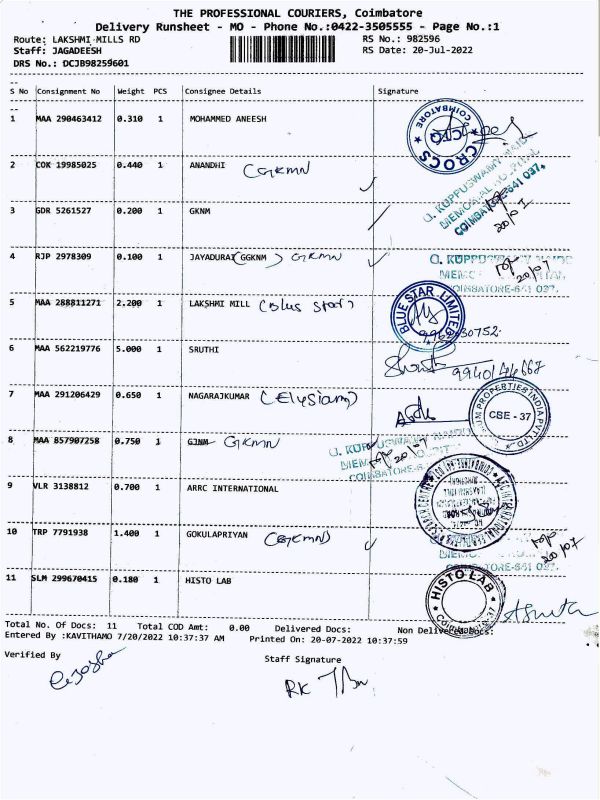 THE PROFESSIONAL COURIERS, Coimbatore
Delivery Runsheet - MO - Phone No.:0422-3505555 - Page No.:1
Route: LAKSHMI MILLS RD RS No.: 982596
Staff: JAGADEESH RS Date: 20-Jul-2022
DRS No.: DCJB98259601
S No Consignment No Weight PCS Consignee Details Signature
1 MAA 290463412 0.310 1 MOHAMMED ANEESH
COIMBATORE CROCS
2 COK 19985025 0.440 1 ANANDHI (GKMN
G. KUPPUSWAMY NAIDU
MEMORIAL HOSPITAL
COIMBATORE-641 037.
3 GDR 5261527 0.200 1 GKNM
20/07
4 RJP 2978309 0.100 1 JAYADURAI(GGKNM ) GKMN
G. KUPPUSWAMY NAIDU
20/07
COIMBATORE-641 037.
5 MAA 288811271 2.200 1 LAKSHMI MILL (Blus star)
BLUE STAR LIMITED
6 MAA 562219776 5.000 1 SRUTHI
7 MAA 291206429 0.650 1 NAGARAJKUMAR (Elysium)
PROPERTIES INDIA PVT LTD
CBE - 37
8 MAA 857907258 0.750 1 GJNM GKMN
20/07
9 VLR 3138812 0.700 1 ARRC INTERNATIONAL
10 TRP 7791938 1.400 1 GOKULAPRIYAN (GKMN)
20/07
COIMBATORE-641 037.
11 SLM 299670415 0.180 1 HISTO LAB
HISTO LAB
COIMBATORE-37
Total No. Of Docs: 11 Total COD Amt: 0.00 Delivered Docs: Non Delivered Docs:
Entered By :KAVITHAMO 7/20/2022 10:37:37 AM Printed On: 20-07-2022 10:37:59
Verified By Staff Signature
RK